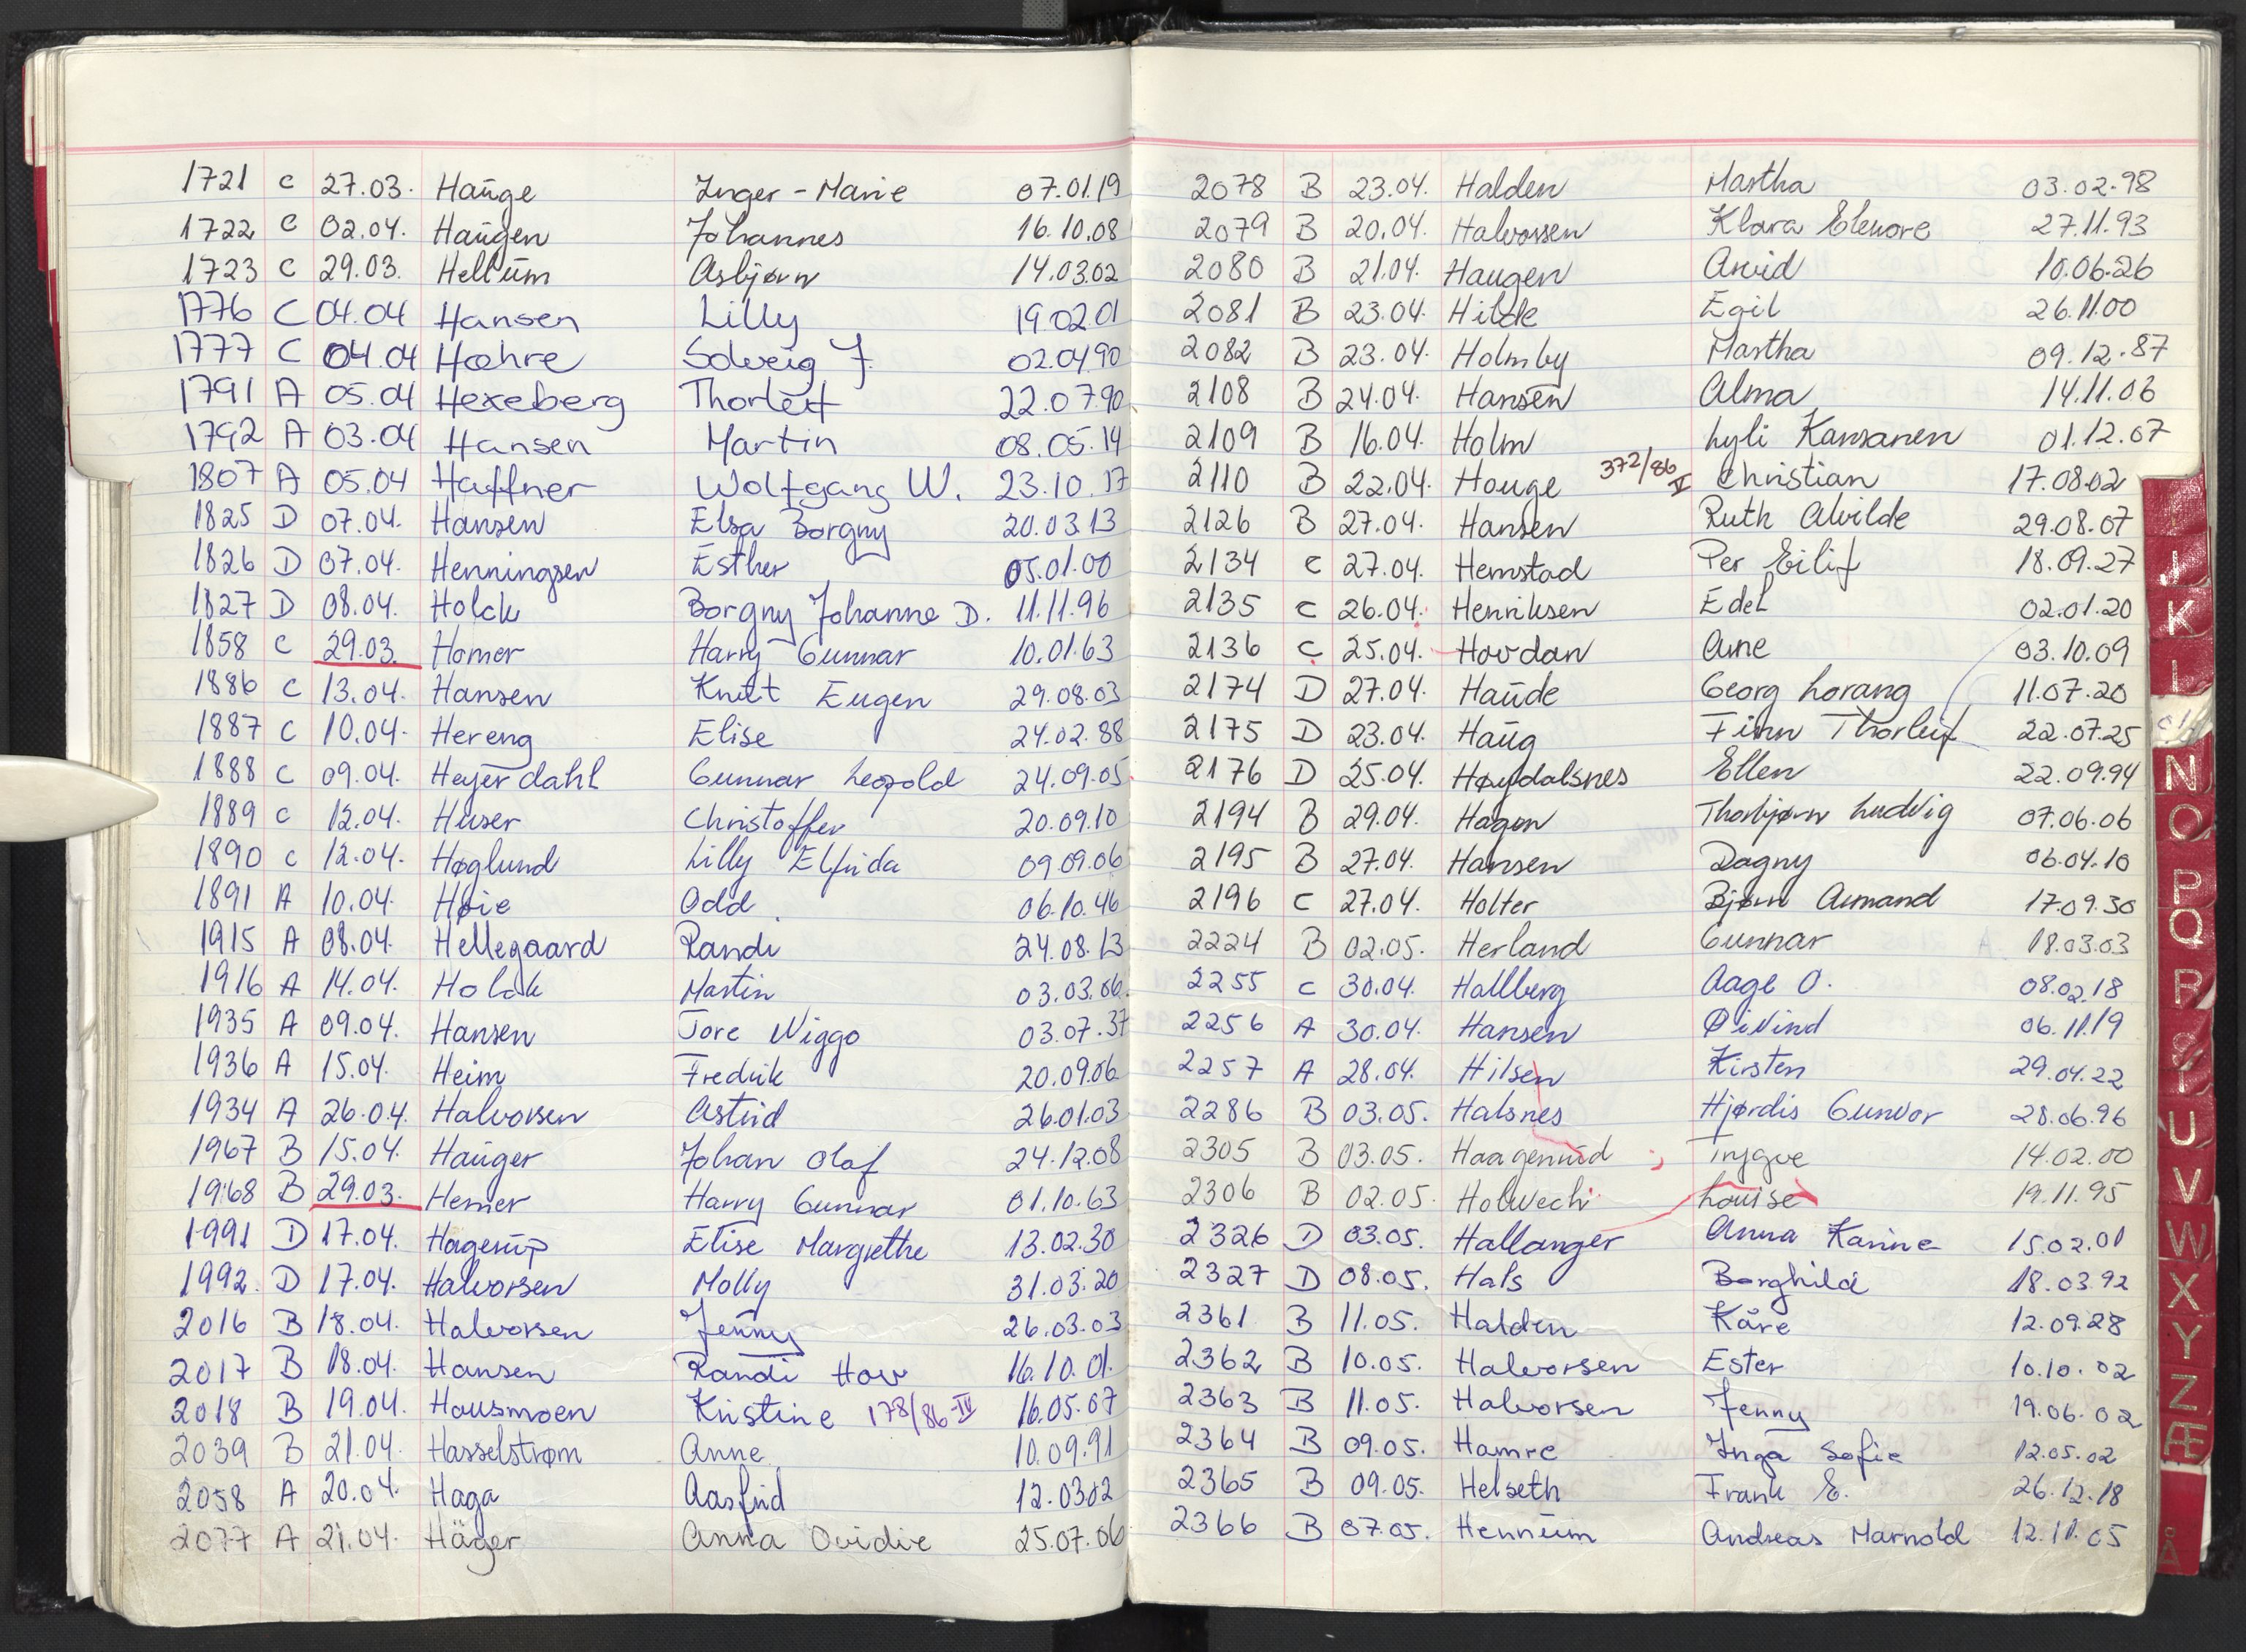 1721 C 27.03. Hauge Inger-Marie 07.01.19
1722 C 02.04. Haugen Johannes 16.10.08
1723 C 29.03. Hellum Asbjørn 14.03.02
1776 C 04.04 Hansen Lilly 19.02.01
1777 C 04.04 Hæhre Solveig J. 02.04.90
1791 A 05.04 Hexeberg Thorleif 22.07.90
1792 A 03.04 Hansen Martin 08.05.14
1807 A 05.04 Haffner Wolfgang W. 23.10.17
1825 D 07.04. Hansen Elsa Borgny 20.03.13
1826 D 07.04. Henningsen Esther 05.01.00
1827 D 08.04. Holck Borgny Johanne D. 11.11.96
1858 C 29.03. Homer Harry Gunnar 10.01.63
1886 C 13.04. Hansen Knut Eugen 29.08.03
1887 C 10.04. Hereng Elise 24.02.88
1888 C 09.04. Heyerdahl Gunnar Leopold 24.09.05
1889 C 12.04. Huser Christoffer 20.09.10
1890 C 12.04. Høglund Lilly Elfrida 09.09.06
1891 A 10.04. Høie Odd 06.10.46
1915 A 08.04. Hellegaard Randi 24.08.13
1916 A 14.04. Holck Martin 03.03.06.
1935 A 09.04. Hansen Tore Wiggo 03.07.37
1936 A 15.04. Heim Fredrik 20.09.06
1934 A 26.04. Halvorsen Astrid 26.01.03
1967 B 15.04. Hauger Johan Olaf 24.12.08
1968 B 29.03. Hemer Harry Gunnar 01.10.63
1991 D 17.04. Hagerup Elise Margrethe 13.02.30
1992. D 17.04. Halvorsen Molly 31.03.20
2016 B 18.04. Halvorsen Jenny 26.03.03
2017 B 18.04. Hansen Randi Hov 16.10.01.
2018 B 19.04. Hausmoen Kristine 178/86-IV 16.05.07
2039 B 21.04. Hasselstrøm Anne 10.09.91
2058 A 20.04. Haga Aasfrid 12.03.02
2077 A 21.04. Häger Anna Ovidie 25.07.06
2078 B 23.04. Halden Martha 03.02.98
2079 B 20.04. Halvorsen Klara Elenore 27.11.93
2080 B 21.04. Haugen Arvid 10.06.26
2081 B 23.04. Hilde Egil 26.11.00
2082 B 23.04. Holmby Martha 09.12.87
2108 B 24.04. Hansen Alma 14.11.06
2109 B 16.04. Holm Lyli Kansanen 01.12.07
2110 B 22.04. Houge 372/86 V Christian 17.08.02
2126 B 27.04. Hansen Ruth Alvilde 29.08.07
2134 C 27.04. Hemstad Per Eilif 18.09.27
2135 C 26.04. Henriksen Edel 02.01.20
2136 C 25.04. Hovdan Arne 03.10.09
2174 D 27.04. Haude Georg Lorang 11.07.20
2175 D 23.04. Haug Finn Thorleif 22.07.25
2176 D 25.04. Høydalsnes Ellen 22.09.94
2194 B 29.04. Hagen Thorbjørn Ludvig 07.06.06
2195 B 27.04. Hansen Dagny 06.04.10
2196 C 27.04. Holter Bjørn Armand 17.09.30
2224 B 02.05. Herland Gunnar 18.03.03
2255 C 30.04. Hallberg Aage O. 08.02.18
2256 A 30.04. Hansen Øivind 06.11.19
2257 A 28.04. Hilsen Kirsten 29.04.22
2286 B 03.05. Halsnes Hjørdis Gunvor 28.06.96
2305 B 03.05. Haagenrud Trygve 14.02.00
2306 B 02.05. Holwech Louise 19.11.95
2326 D 03.05. Hallanger Anna Karine 15.02.01
2327 D 08.05. Hals Borghild 18.03.92
2361 B 11.05. Halden Kåre 12.09.28
2362 B 10.05. Halvorsen Ester 10.10.02
2363 B 11.05. Halvorsen Jenny 19.06.02
2364 B 09.05. Hamre Inga Sofie 12.05.02
2365 B 09.05. Helseth Frank E. 26.12.18
2366 B 07.05. Hennum Andreas Marnold 12.11.05
J
K
L
N
O
P
Q
R
S
T
U
V
W
X
Y
Z
Æ
Å